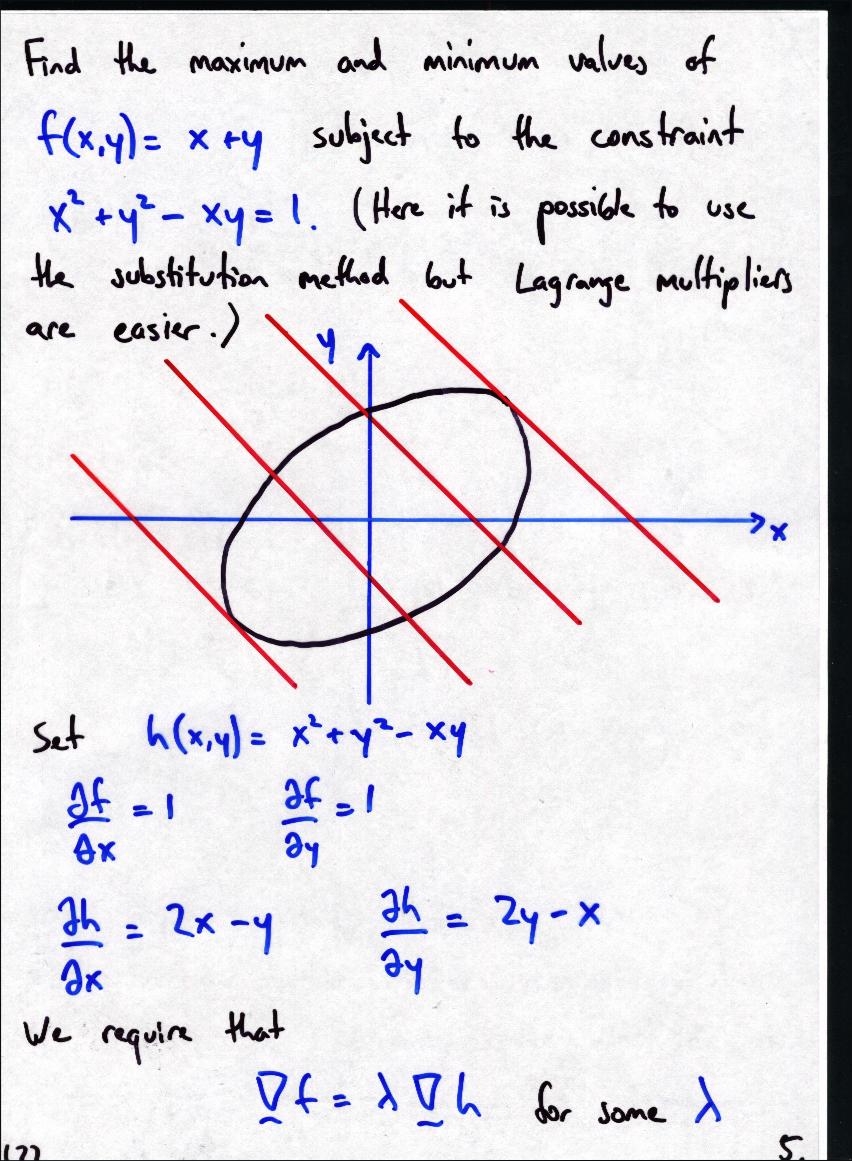 Find the maximum and minimum values of
f(x,y) = x + y subject to the constraint
x² + y² - xy = 1. (Here it is possible to use
the substitution method but Lagrange multipliers
are easier.)
y
x
Set h(x,y) = x² + y² - xy
∂f/∂x = 1 ∂f/∂y = 1
∂h/∂x = 2x - y ∂h/∂y = 2y - x
We require that
∇f = λ∇h for some λ
5.